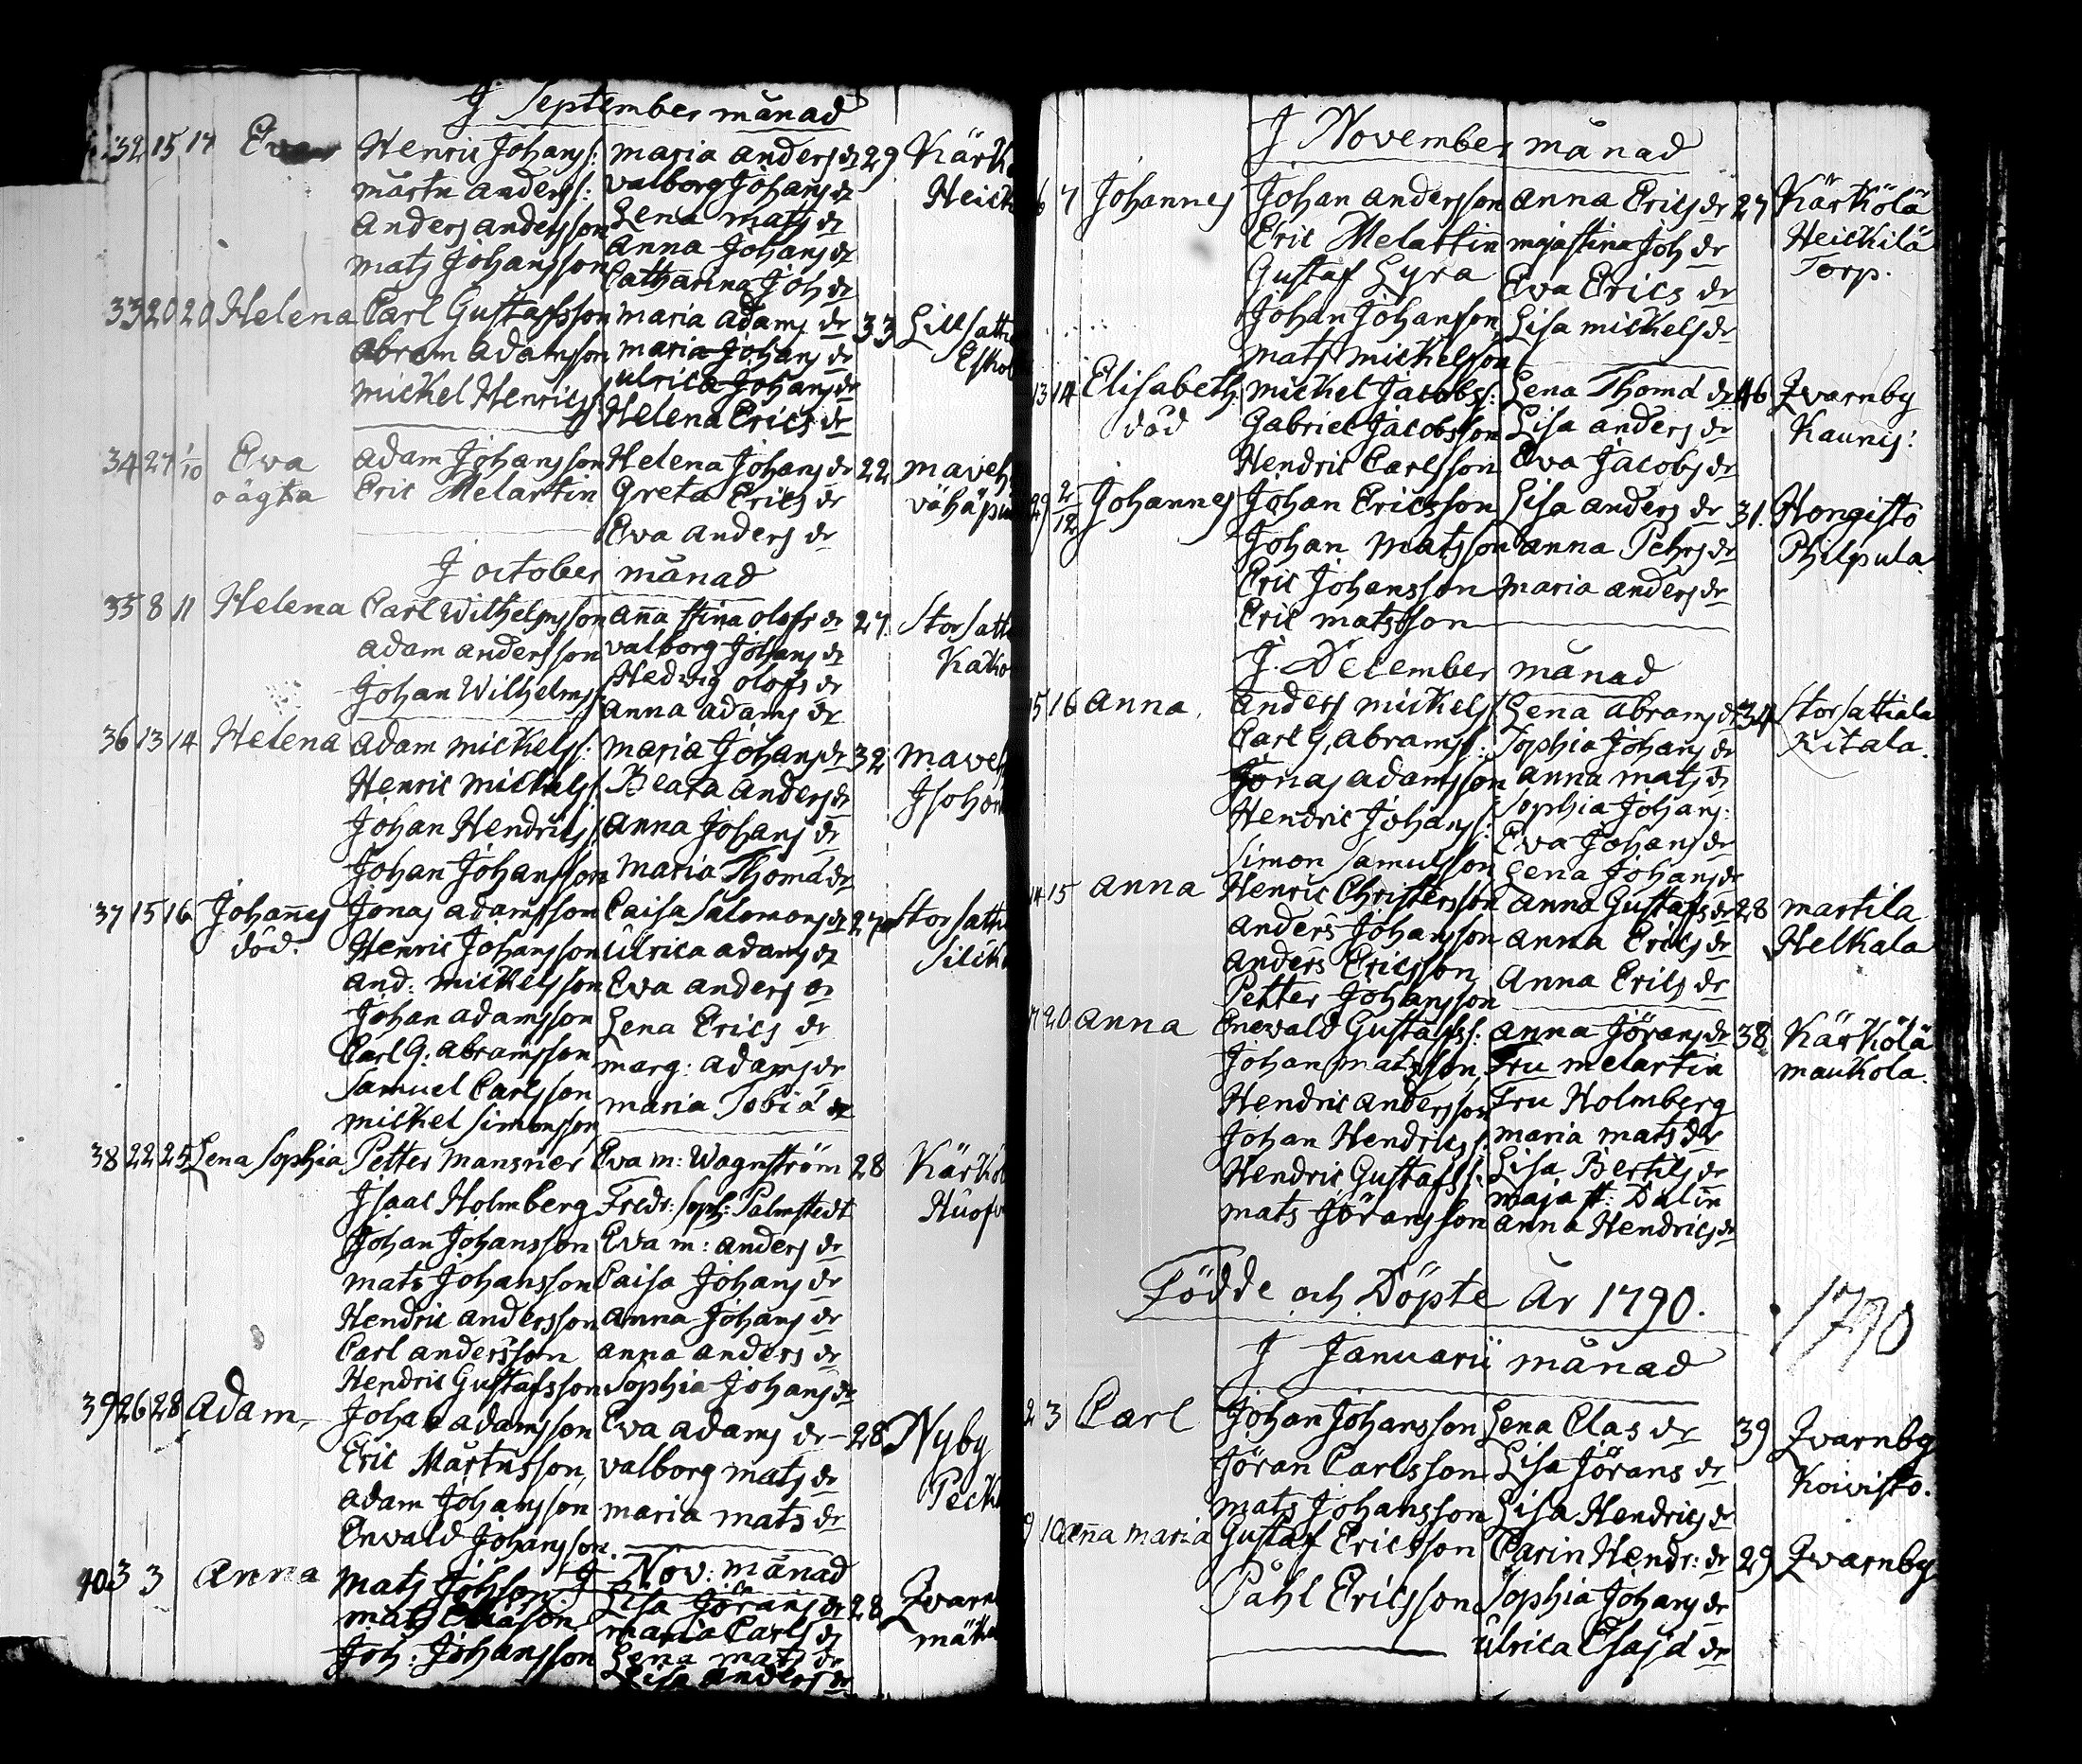 J September månad
32 15 17 Eva Henric Johans: maria anders dr 29 Kärk
mårtn anders: valborg Johans dr Heick
Anders andersson Lena mats dr
mats Johansson anna Johans dr
Catharina Joh dr
33 20 20 Helena Carl Gustafsson maria adams dr 33 Lillsatti
Abram adamsson maria Johans dr Eskol
mickel Henrics: ulrica Johans dr
Helena Erics dr
34 27 1/10 Eva adam Johansson Helena Johans dr 22 maveh
oägta Eric Melartin Greta Erics dr vähäp
Eva anders dr
J october månad
35 8 11 Helena Carl Wilhelmsson anna stina olofs dr 27 Storsatt
adam andersson valborg Johans dr Kako
Johan Wilhelms: Hedvig olofs dr
anna adams dr
36 13 14 Helena adam mickels: maria Johans dr 32 maveh
Henric mickels: Beata anders dr Isoho
Johan Hendrics: anna Johans dr
Johan Johansson maria Thoma dr
37 15 16 Johannes Jonas adamsson Caisa Salomons dr 27 Storsatti
död. Henric Johansson ulrica adams dr Silck
and: mickelsson Eva anders dr
Johan adamsson Lena Erics dr
Carl G: abramsson marg: adams dr
Samuel Carlsson maria Tobia dr
mickel Simonsson
38 22 25 Lena Sophia Petter mansner Eva m: Wagnström 28 Kärkö
Isaac Holmberg Fredr: Soph: Palmstedt Huof
Johan Johansson Eva m: anders dr
mats Johansson Caisa Johans dr
Hendric andersson anna Johans dr
Carl andersson anna anders dr
Hendric Gustafsson Sophia Johans dr
39 26 28 Adam Johan adamsson Eva adams dr 28 Nyby
Eric Mårtnsson valborg mats dr Peck
adam Johansson maria mats dr
Enwald Johansson.
J Nov: månad
40 3 3 Anna mats Johsson Lisa Jörans dr 28 Qvarn
mats maria Carls dr
Joh: Johansson Lena mats dr
Lisa anders dr
J November månad
6 7 Johannes Johan andersson anna Erics dr 27 Kärkölä
Eric Melartin maja stina Joh dr Heickilä
Gustaf Lyra Eva Erics dr Torp.
Johan Johansson Lisa mickels dr
mats mickelsson
13 14 Elisabeth mickel Jacobs: Lena Thoma dr 46 Qvarnby
död Gabriel Jacobsson Lisa anders dr Kaunis:
Hendric Carlsson Eva Jacobs dr
29 2/12 Johannes Johan Ericsson Lisa anders dr 31. Hongisto
Johan Matsson anna Pehrs dr Philpula.
Eric Johansson maria anders dr
Eric matsson
J December månad
15 16 anna anders mickels: Lena abrams dr 34 Storsattiala
Carl G, abrams: Sophia Johans dr Kitala.
Jonas adamsson anna mats dr
Hendric Johans: Sophia Johans:
Eva Johans dr
Simon Samulsson Lena Johans dr
14 15 anna Henric Christersson anna Gustafs dr 28 martila
anders Johansson anna Erics dr Helkala
anders Ericsson Anna Erics dr
Petter Johansson
17 20 anna Enewald Gustafss: anna Jörans dr 38 Kärkölä
Johan matsson Fru melartin maukola.
Hendric andersson Fru Holmberg
Johan Hendrics: maria mats dr
Hendric Gustafss: Lisa Bertils dr
maja st: Dalin
mats Jöransson anna Hendrics dr
Födde och Döpte år 1790.
1790
J Januarii månad
2 3 Carl Johan Johansson Lena Clas dr 39 Qvarnby
Jöran Carlsson Lisa Jörans dr Koivisto.
mats Johansson Lisa Hendrics dr
9 10 anna maria Gustaf Ericsson Carin Hendr: dr 29 Qvarnby
Påhl Ericsson Sophia Johans dr
ulrica Esaja dr